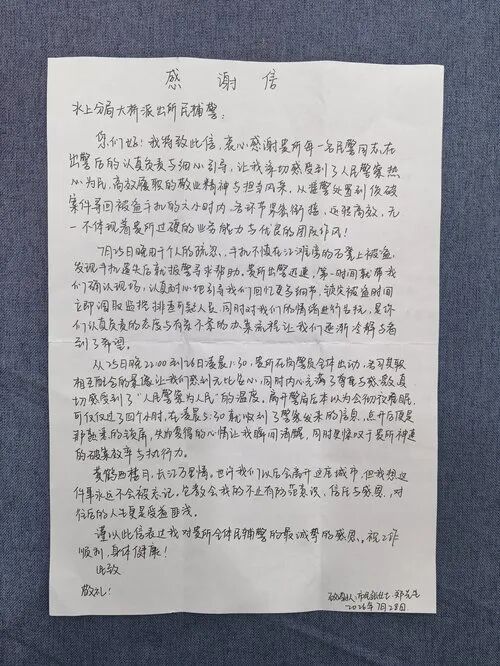 感谢信
水上分局大桥派出所民辅警：
您们好！我特致此信，衷心感谢贵所每一名民警同志在
出警后的认真负责与细心引导，让我亲切感受到了人民警察热
心为民，高效履职的敬业精神与担当风采。从接警处置到侦破
案件寻回被盗手机的六小时内，各环节紧密衔接，迅驰高效，无
一不体现着贵所过硬的业务能力与优良的团队作风！
7月25日晚由于个人的疏忽，手机不慎在江滩旁的石凳上被盗，
发现手机遗失后就报警寻求帮助。贵所出警迅速，第一时间就带我
们确认现场，认真耐心地引导我们回忆更多细节，锁失被盗时间
立即调取监控排查可疑人员，同时对我们的情绪进行告抚，是你
们认真负责的态度与有条不紊的办案流程让我们逐渐冷静与看
到了希望。
从25日晚22:00到26日凌晨1:30，贵所在岗警员全体出动，各司其职
相互配合的景像让我们感到无比安心，同时内心充满了尊重与感激，真
切感受到了"人民警察为人民"的温度。离开警局后本以为会彻夜难眠，
可仅仅过了四个小时，在凌晨5:30就收到了警察发来的信息，点开后便是
那熟悉的锁屏，失而复得的心情让我瞬间清醒，同时更惊叹于贵所神速
的破案效率与执行力。
黄鹤西楼月，长江万里情。也许我们以后会离开这座城市，但我想这
件事永远不会被忘记。它教会我的不止有防范意识，信任与感恩，对
往后的人生更是受益匪浅。
谨以此信表达我对贵所全体民辅警的最诚挚的感恩。祝工作
顺利，身体健康！
此致
敬礼！
2026年7月28日